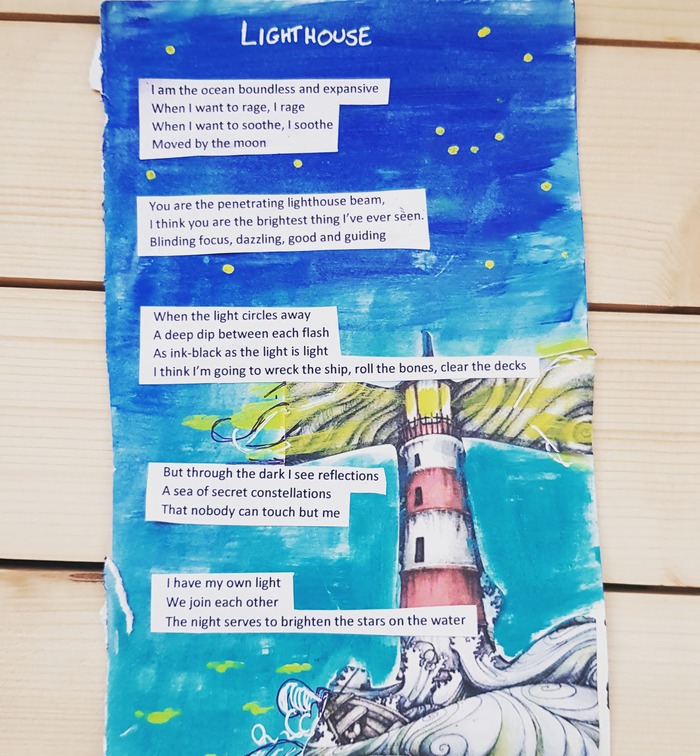 LIGHTHOUSE
I am the ocean boundless and expansive
When I want to rage, I rage
When I want to soothe, I soothe
Moved by the moon
You are the penetrating lighthouse beam,
I think you are the brightest thing I've ever seen.
Blinding focus, dazzling, good and guiding
When the light circles away
A deep dip between each flash
As ink-black as the light is light
I think I'm going to wreck the ship, roll the bones, clear the decks
But through the dark I see reflections
A sea of secret constellations
That nobody can touch but me
I have my own light
We join each other
The night serves to brighten the stars on the water